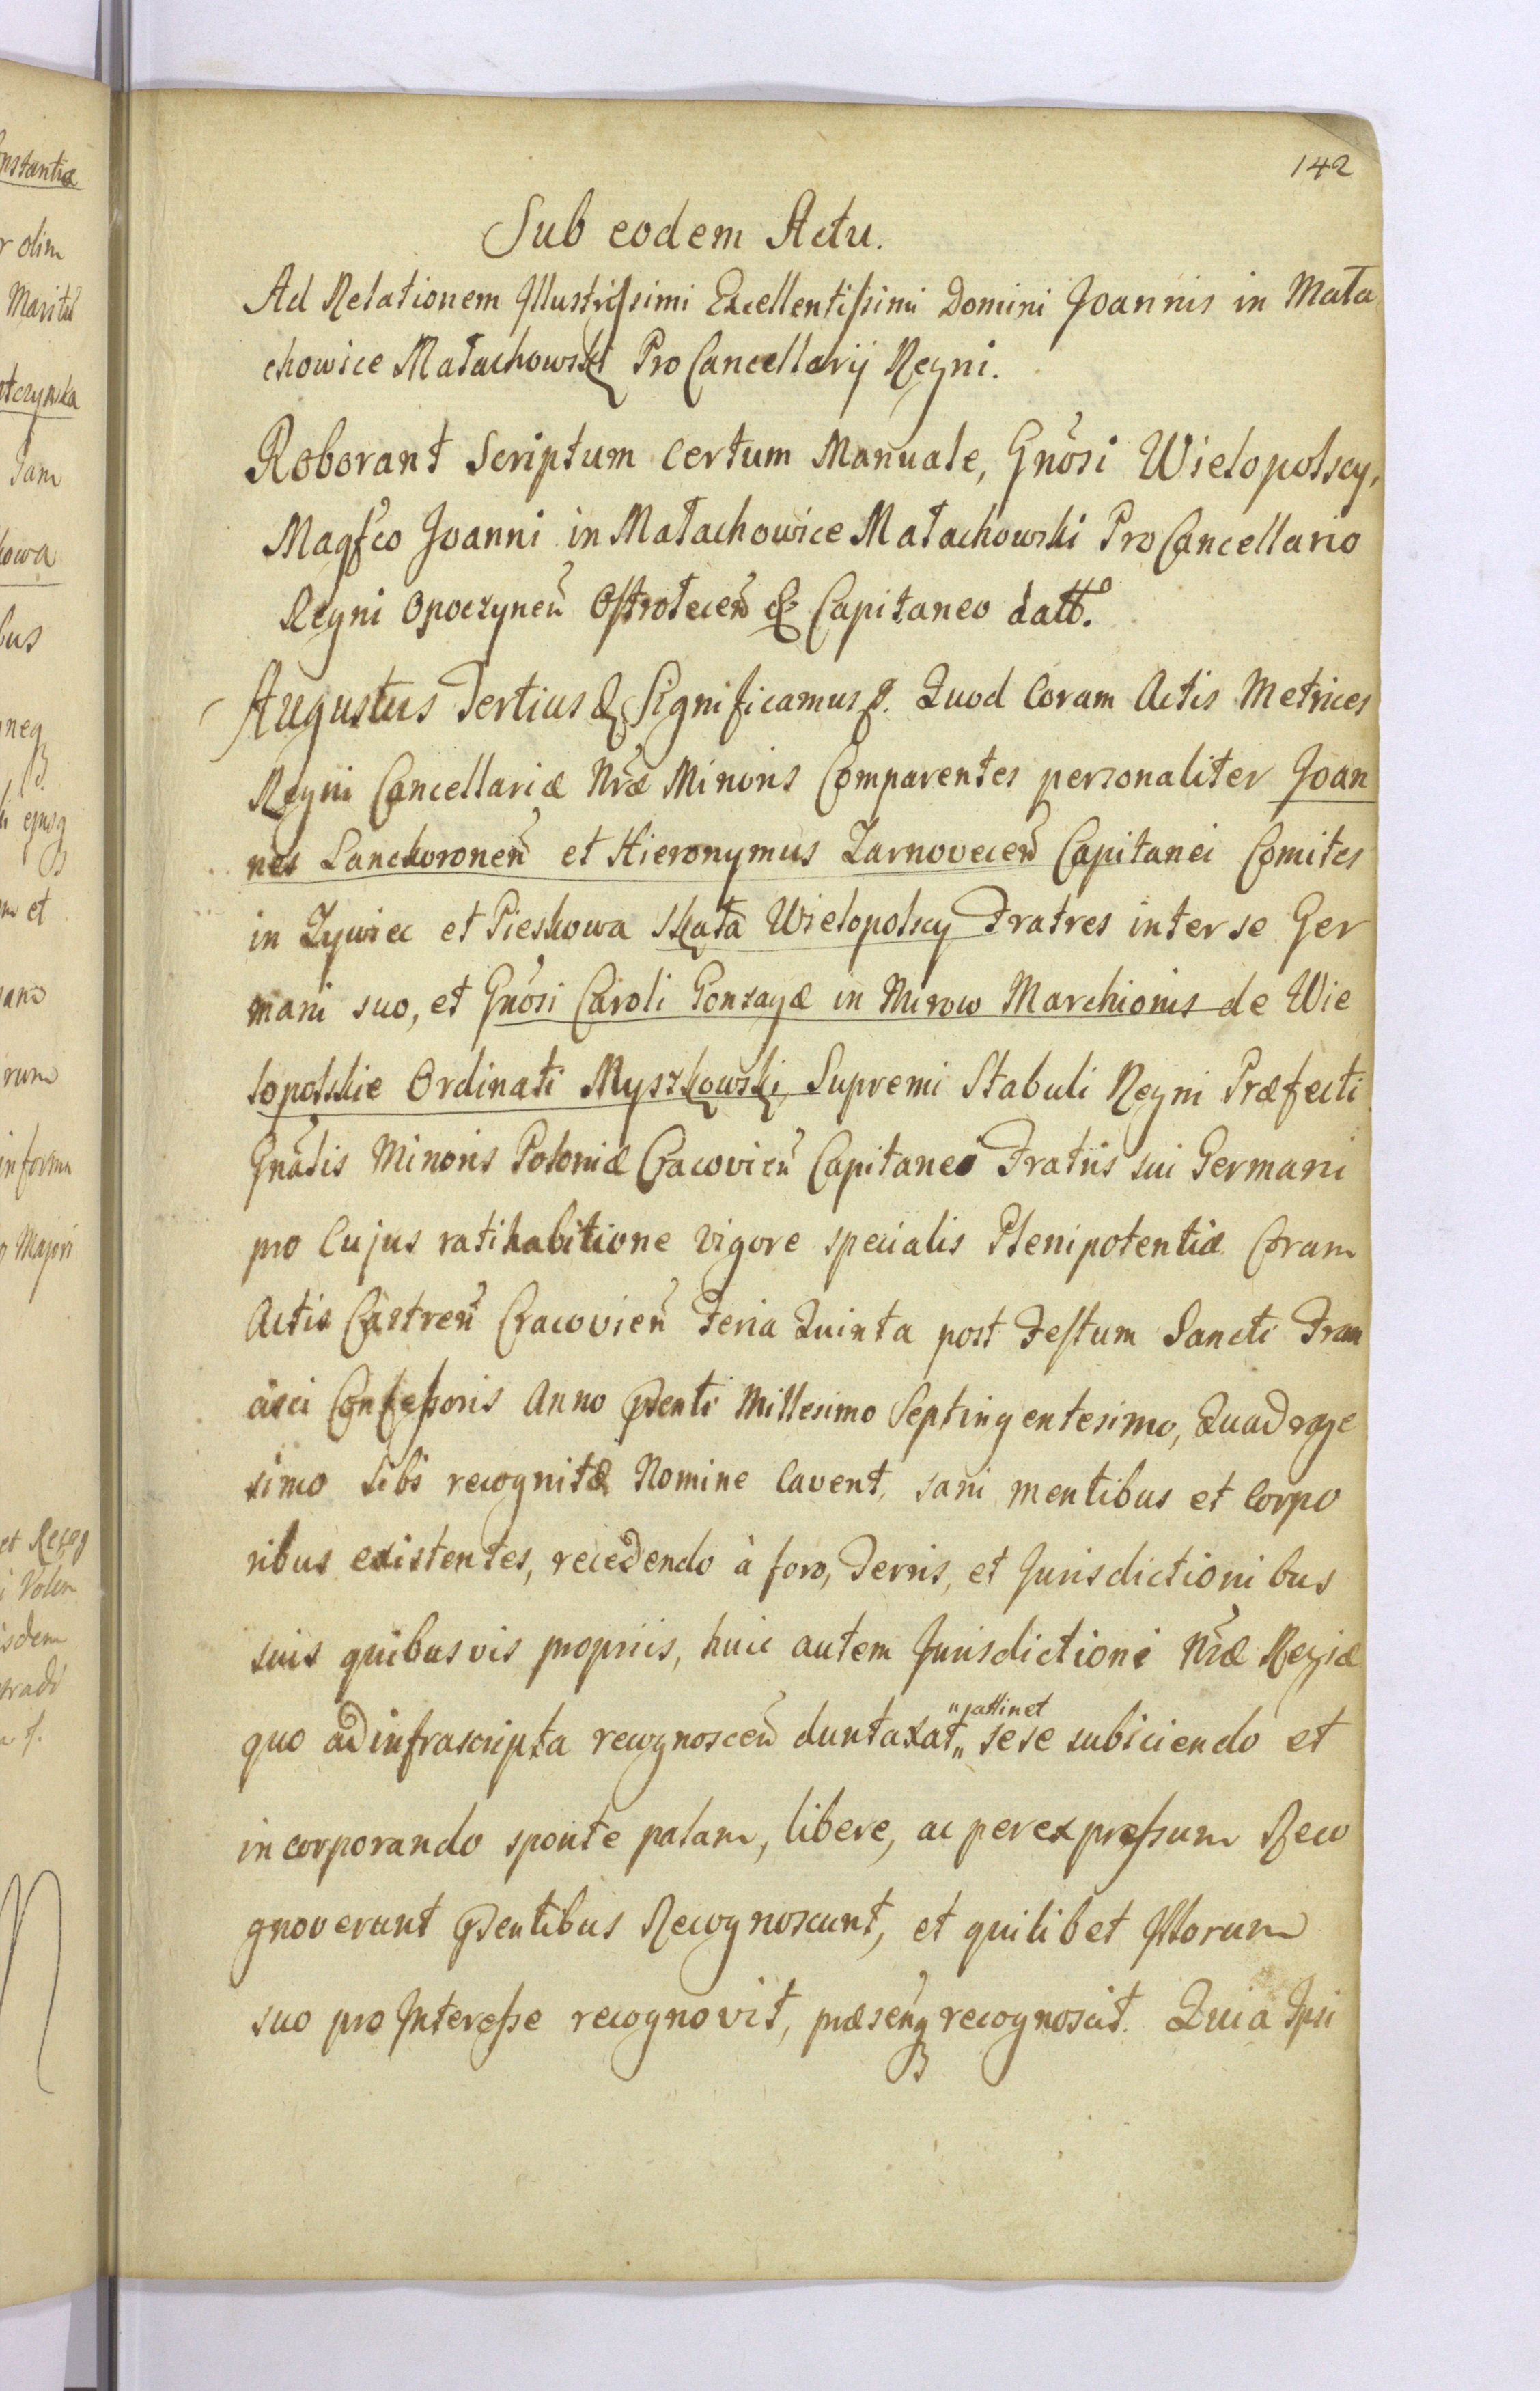 142
Sub eodem Actu.
Ad Relationem Illustrissimi Excellentissimi Domini Joannis in Mała
chowice Małachowski Pro Cancellarij Regni.
Roborant Scriptum certum Manuale, Gnosi Wielopolscy,
Magfco Joanni in Małachowice Małachowski Pro Cancellario
Regni Opoczynen Ostrołecen & Capitaneo datt.
Augustus Tertius & Significamus &. Quod Coram Actis Metrices
Regni Cancellariæ Nræ Minoris Comparentes personaliter Joan
nes Lanckoronen et Hieronymus Zarnovecen Capitanei Comites
in Zywiec et Pieskowa Skała Wielopolscy Fratres inter se Ger
mani suo, et Gnosi Caroli Gonzagæ in Mirow Marchionis de Wie
lopolskie Ordinati Myszkowski, Supremi Stabuli Regni Præfecti
Gnalis Minoris Poloniæ Cracovien Capitanei Fratris sui Germani
pro Cujus ratihabitione vigore specialis Plenipotentiæ Coram
Actis Castren Cracovien Feria Quinta post Festum Sancti Fran
cisci Confessoris Anno Psenti Millesimo Septingentesimo, Quadrage
simo sibi recognitæ Nomine Cavent, sani mentibus et Corpo
ribus existentes, recedendo à foro, Terris, et Jurisdictionibus
suis quibusvis propriis, huic autem Jurisdictioni Nræ Regiæ
quo ad infrascripta recognoscen duntaxat „ attinet „ sese subiciendo et
incorporando sponte palam, libere, ac per expressum Reco
gnoverunt Psentibus Recognoscunt, et quilibet Illorum
suo pro Interesse recognovit, præsenq recognoscit. Quia Ipsi